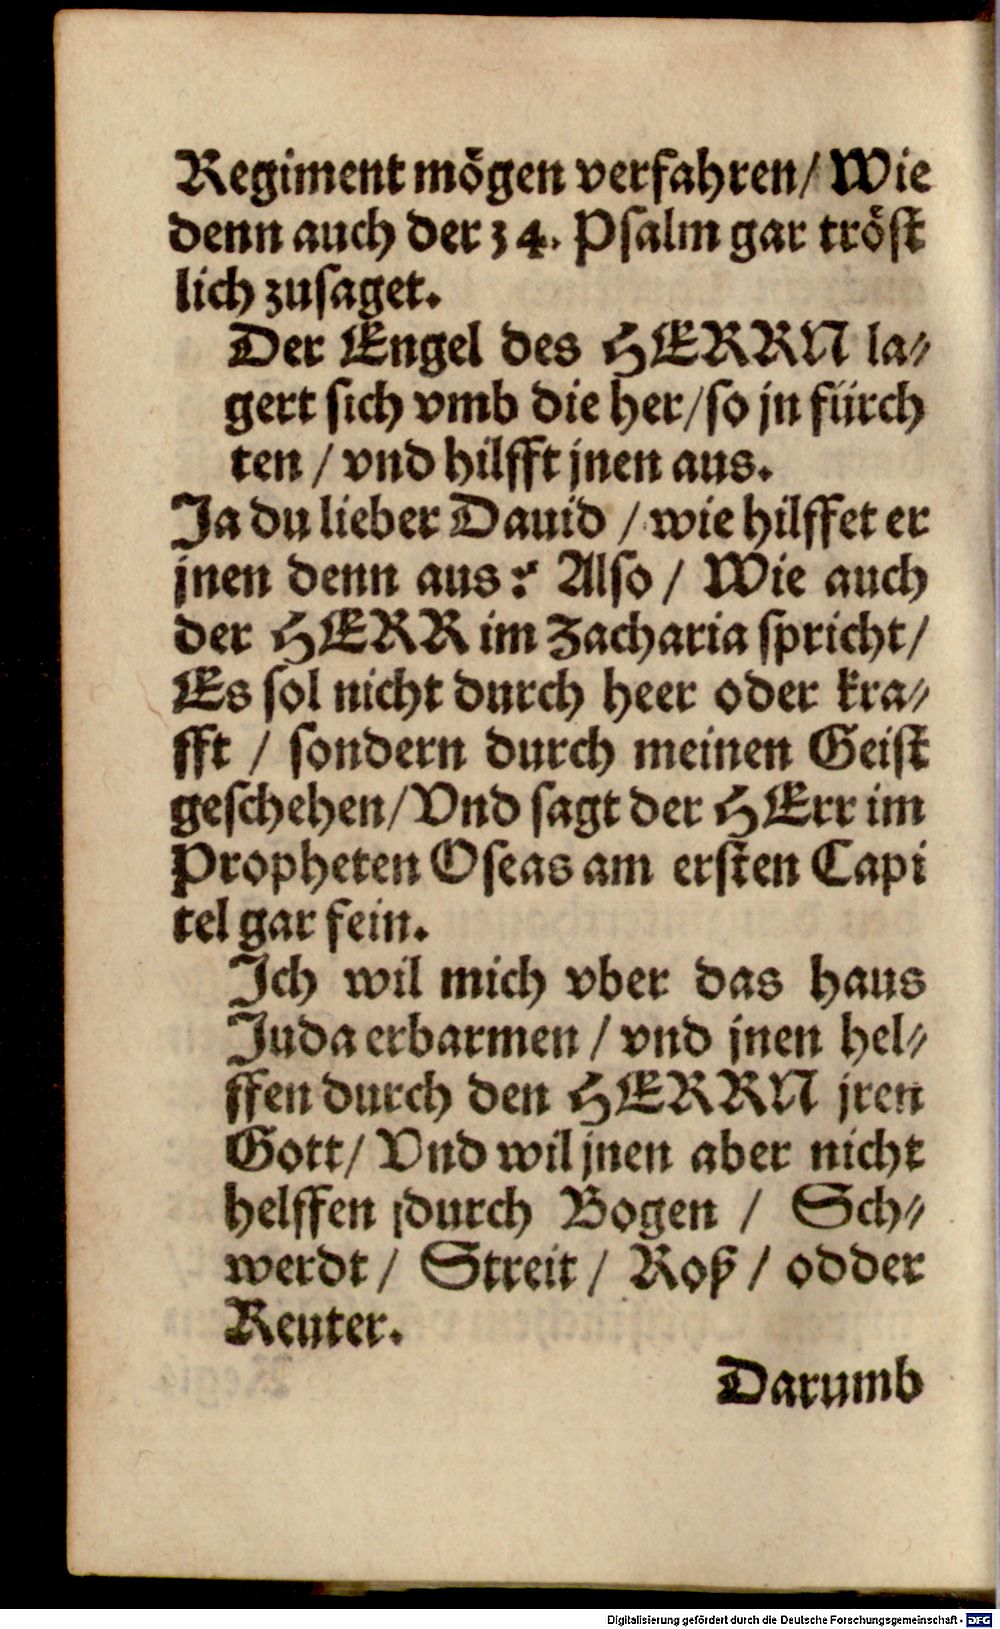 Regiment mögen verfahren/ Wie
denn auch der 34. Psalm gar tröst
lich zusaget.
Der Engel des HERRN la⸗
gert sich vmb die her/ so jn fürch
ten / vnd hilfft jnen aus.
Ja du lieber Dauid / wie hilffet er
jnen denn aus? Also / Wie auch
der HERR im Zacharia spricht/
Es sol nicht durch heer oder kra⸗
fft / sondern durch meinen Geist
geschehen/ Vnd sagt der HErr im
Propheten Oseas am ersten Capi
tel gar fein.
Ich wil mich vber das haus
Juda erbarmen / vnd jnen hel⸗
ffen durch den HERRN jren
Gott/ Vnd wil jnen aber nicht
helffen durch Bogen / Sch⸗
werdt / Streit / Roß / odder
Reuter.
Darumb
Digitalisierung gefördert durch die Deutsche Forschungsgemeinschaft - DFG